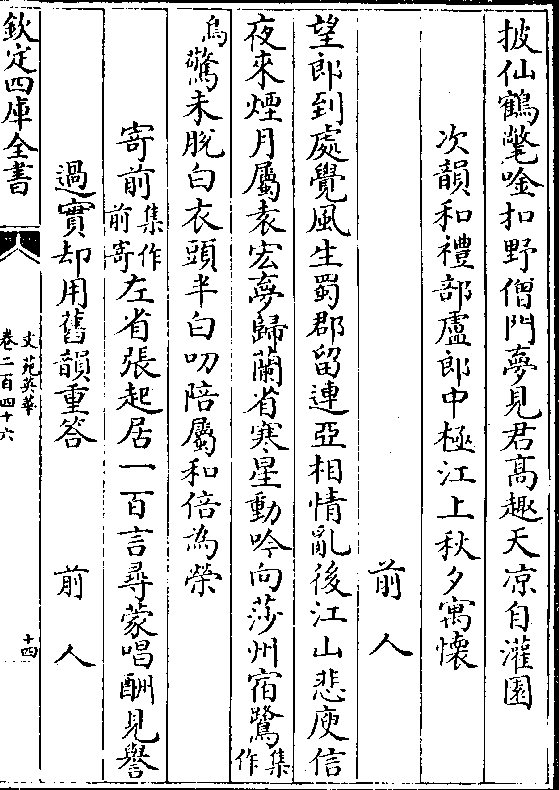 披仙鶴氅唫扣野僧門夢見君髙趣天凉自灌園
次韻和禮部盧郎中極江上秋夕寓懷
前人
望郎到處覺風生蜀郡留連亞相情亂後江山悲庾信
夜來煙月屬袁宏夢歸蘭省寒星動吟向莎州宿鷺集作
烏驚未脫白衣頭半白叨陪屬和倍為榮
寄前集作前寄左省張起居一百言尋蒙唱酬見譽
過實却用舊韻重答 前人
欽定四庫全書
文苑英華
卷二百四十六
十四